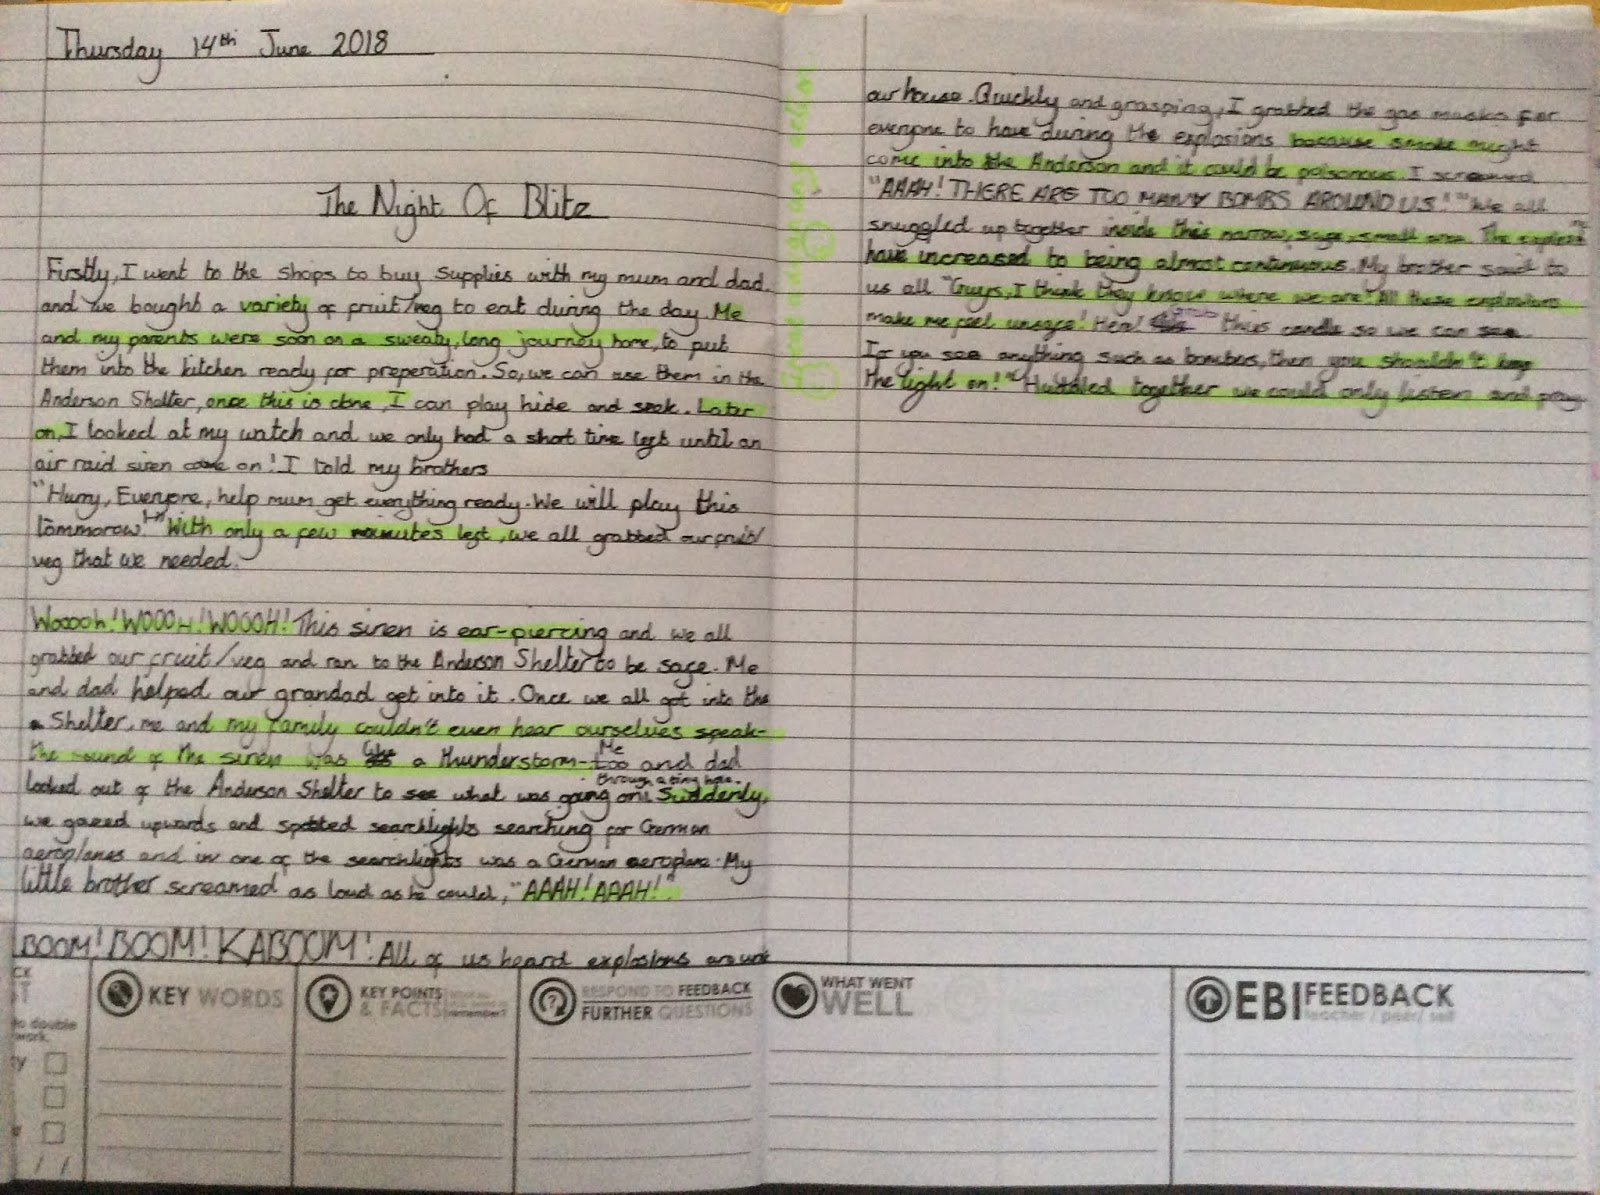 Thursday 14th June 2018
The Night Of Blitz
Firstly, I went to the shops to buy supplies with my mum and dad.
and we bought a variety of fruit/veg to eat during the day. Me
and my parents were soon on a sweaty, long journey home, to put
them into the kitchen ready for preperation. So, we can use them in the
Anderson Shelter, once this is done, I can play hide and seek. Later
on, I looked at my watch and we only had a short time left until an
air raid siren came on! I told my brothers
"Hurry, Everyone, help mum get everything ready. We will play this
tommorow!" With only a few minutes left, we all grabbed our fruit/
veg that we needed.
Wooooh! WOOOH! WOOOH! This siren is ear-piercing and we all
grabbed our fruit/veg and ran to the Anderson Shelter to be safe. Me
and dad helped our grandad get into it. Once we all got into the
Shelter, me and my family couldn't even hear ourselves speak-
the sound of the siren was like a thunderstorm- Me too and dad
looked out of the Anderson Shelter to see what was going on through a tiny hole. Suddenly,
we gazed upwards and spotted searchlights searching for German
aeroplanes and in one of the searchlights was a German aeroplane. My
little brother screamed as loud as he could, "AAAH! AAAH!"
BOOM! BOOM! KABOOM! All of us heard explosions around
our house. Quickly and grasping, I grabbed the gas masks for
everyone to have during the explosions because smoke might
come into the Anderson and it could be poisonous. I screamed
"AAAH! THERE ARE TOO MANY BOMBS AROUND US!" We all
snuggled up together inside this narrow, safe, small area. The
have increased to being almost continuous. My brother said to
us all "Guys, I think they know where we are" All these explosions
make me feel unsafe! Here! grab this candle so we can see.
If you see anything such as bombers, then you shouldn't keep
the light on!" Huddled together we could only listen and pray
to double
work.
KEY WORDS
KEY POINTS
& FACTS
remember?
RESPOND TO FEEDBACK
FURTHER QUESTIONS
WHAT WENT
WELL
EBI FEEDBACK
teacher / peer / self